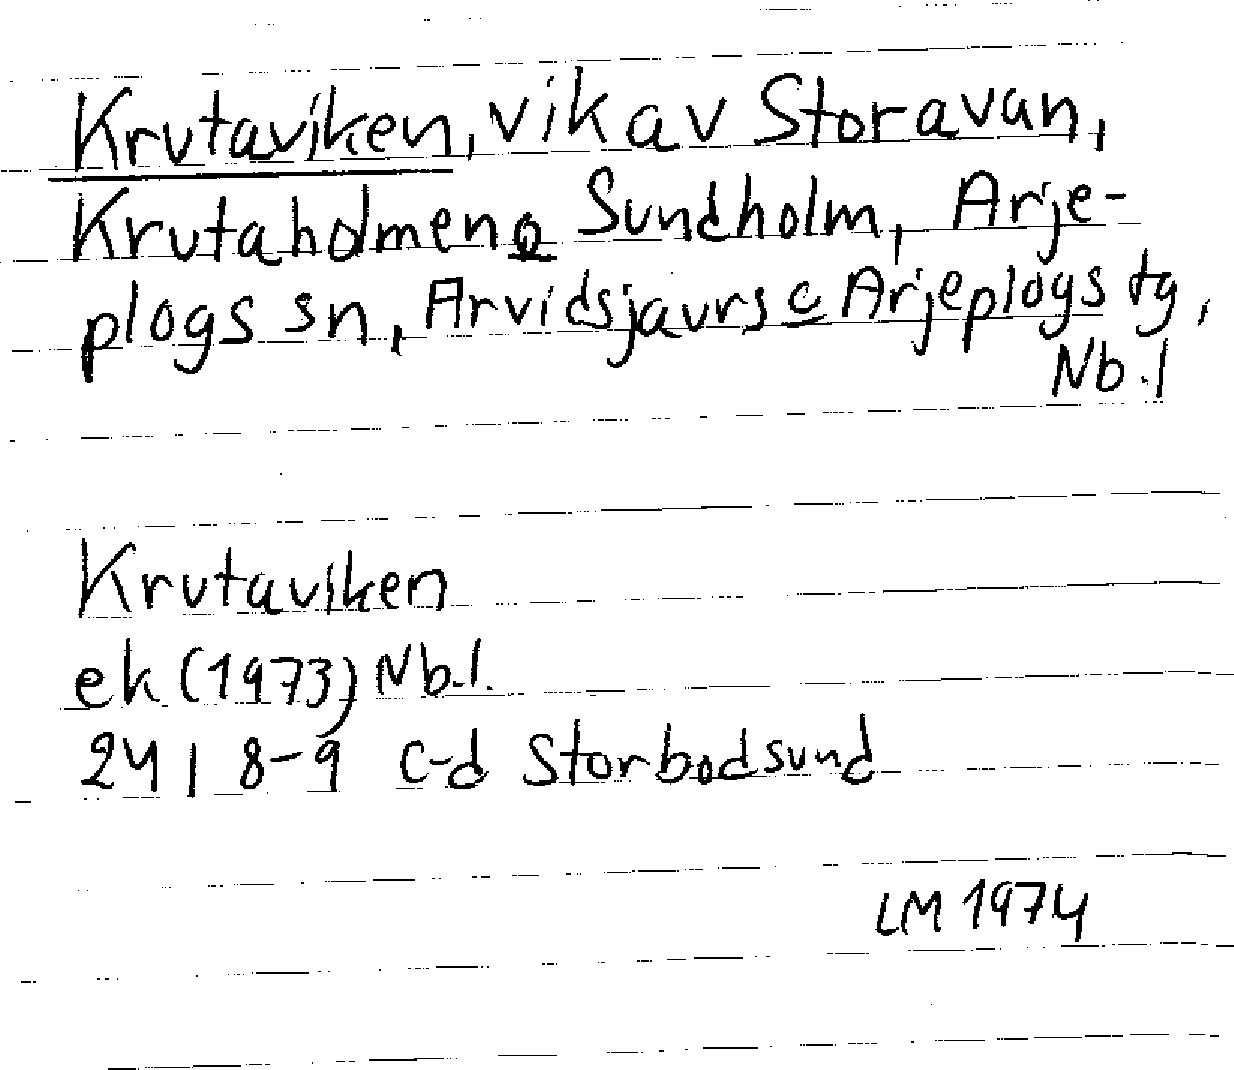 Krutaviken, vik av Storavan,
Krutaholmen o Sundholm, Arje-
plogs sn, Arvidsjaurs o Arjeplogs tg,
Nb.l
Krutaviken
ek (1973) Nb.l.
24 I 8-9 c-d Storbodsund
LM 1974